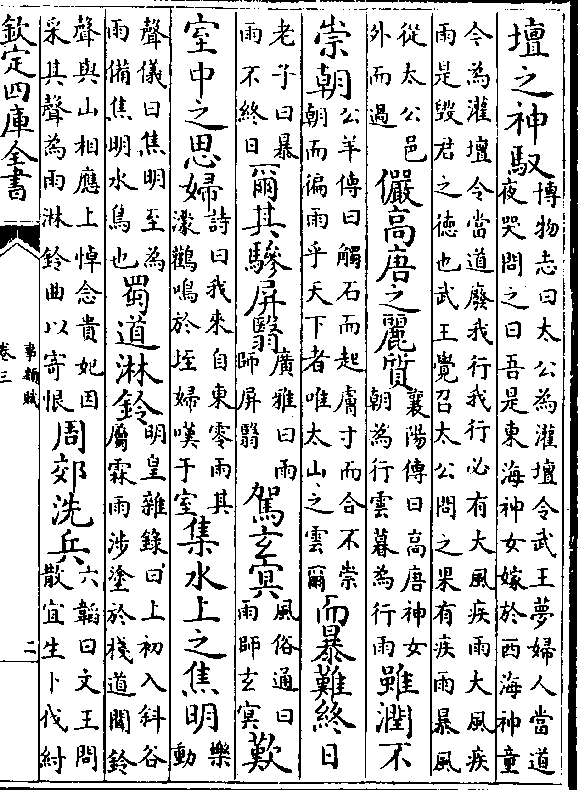 壇之神馭博物志曰太公為灌壇令武王夢婦人當道夜哭問之曰吾是東海神女嫁於西海神童
今為灌壇令當道廢我行我行必有大風疾雨大風疾雨是毀君之徳也武王覺召太公問之果有疾雨暴風
從太公邑外而過儼高唐之麗質襄陽傳曰高唐神女朝為行雲暮為行雨雖潤不
崇朝公羊傳曰觸石而起膚寸而合不崇朝而徧雨乎天下者唯太山之雲爾而暴難終日
老子曰暴雨不終日爾其驂屏翳廣雅曰雨師屏翳駕玄冥風俗通曰雨師玄冥歎
室中之思婦詩曰我來自東零雨其濛鸛鳴於垤婦嘆于室集水上之焦明樂動
聲儀曰焦明至為雨備焦明水鳥也蜀道淋鈴明皇雜録曰上初入斜谷屬霖雨涉塗於棧道聞鈴
聲與山相應上悼念貴妃因采其聲為雨淋鈴曲以寄恨周郊洗兵六韜曰文王問散宜生卜伐紂
欽定四庫全書
事類賦
卷三
二